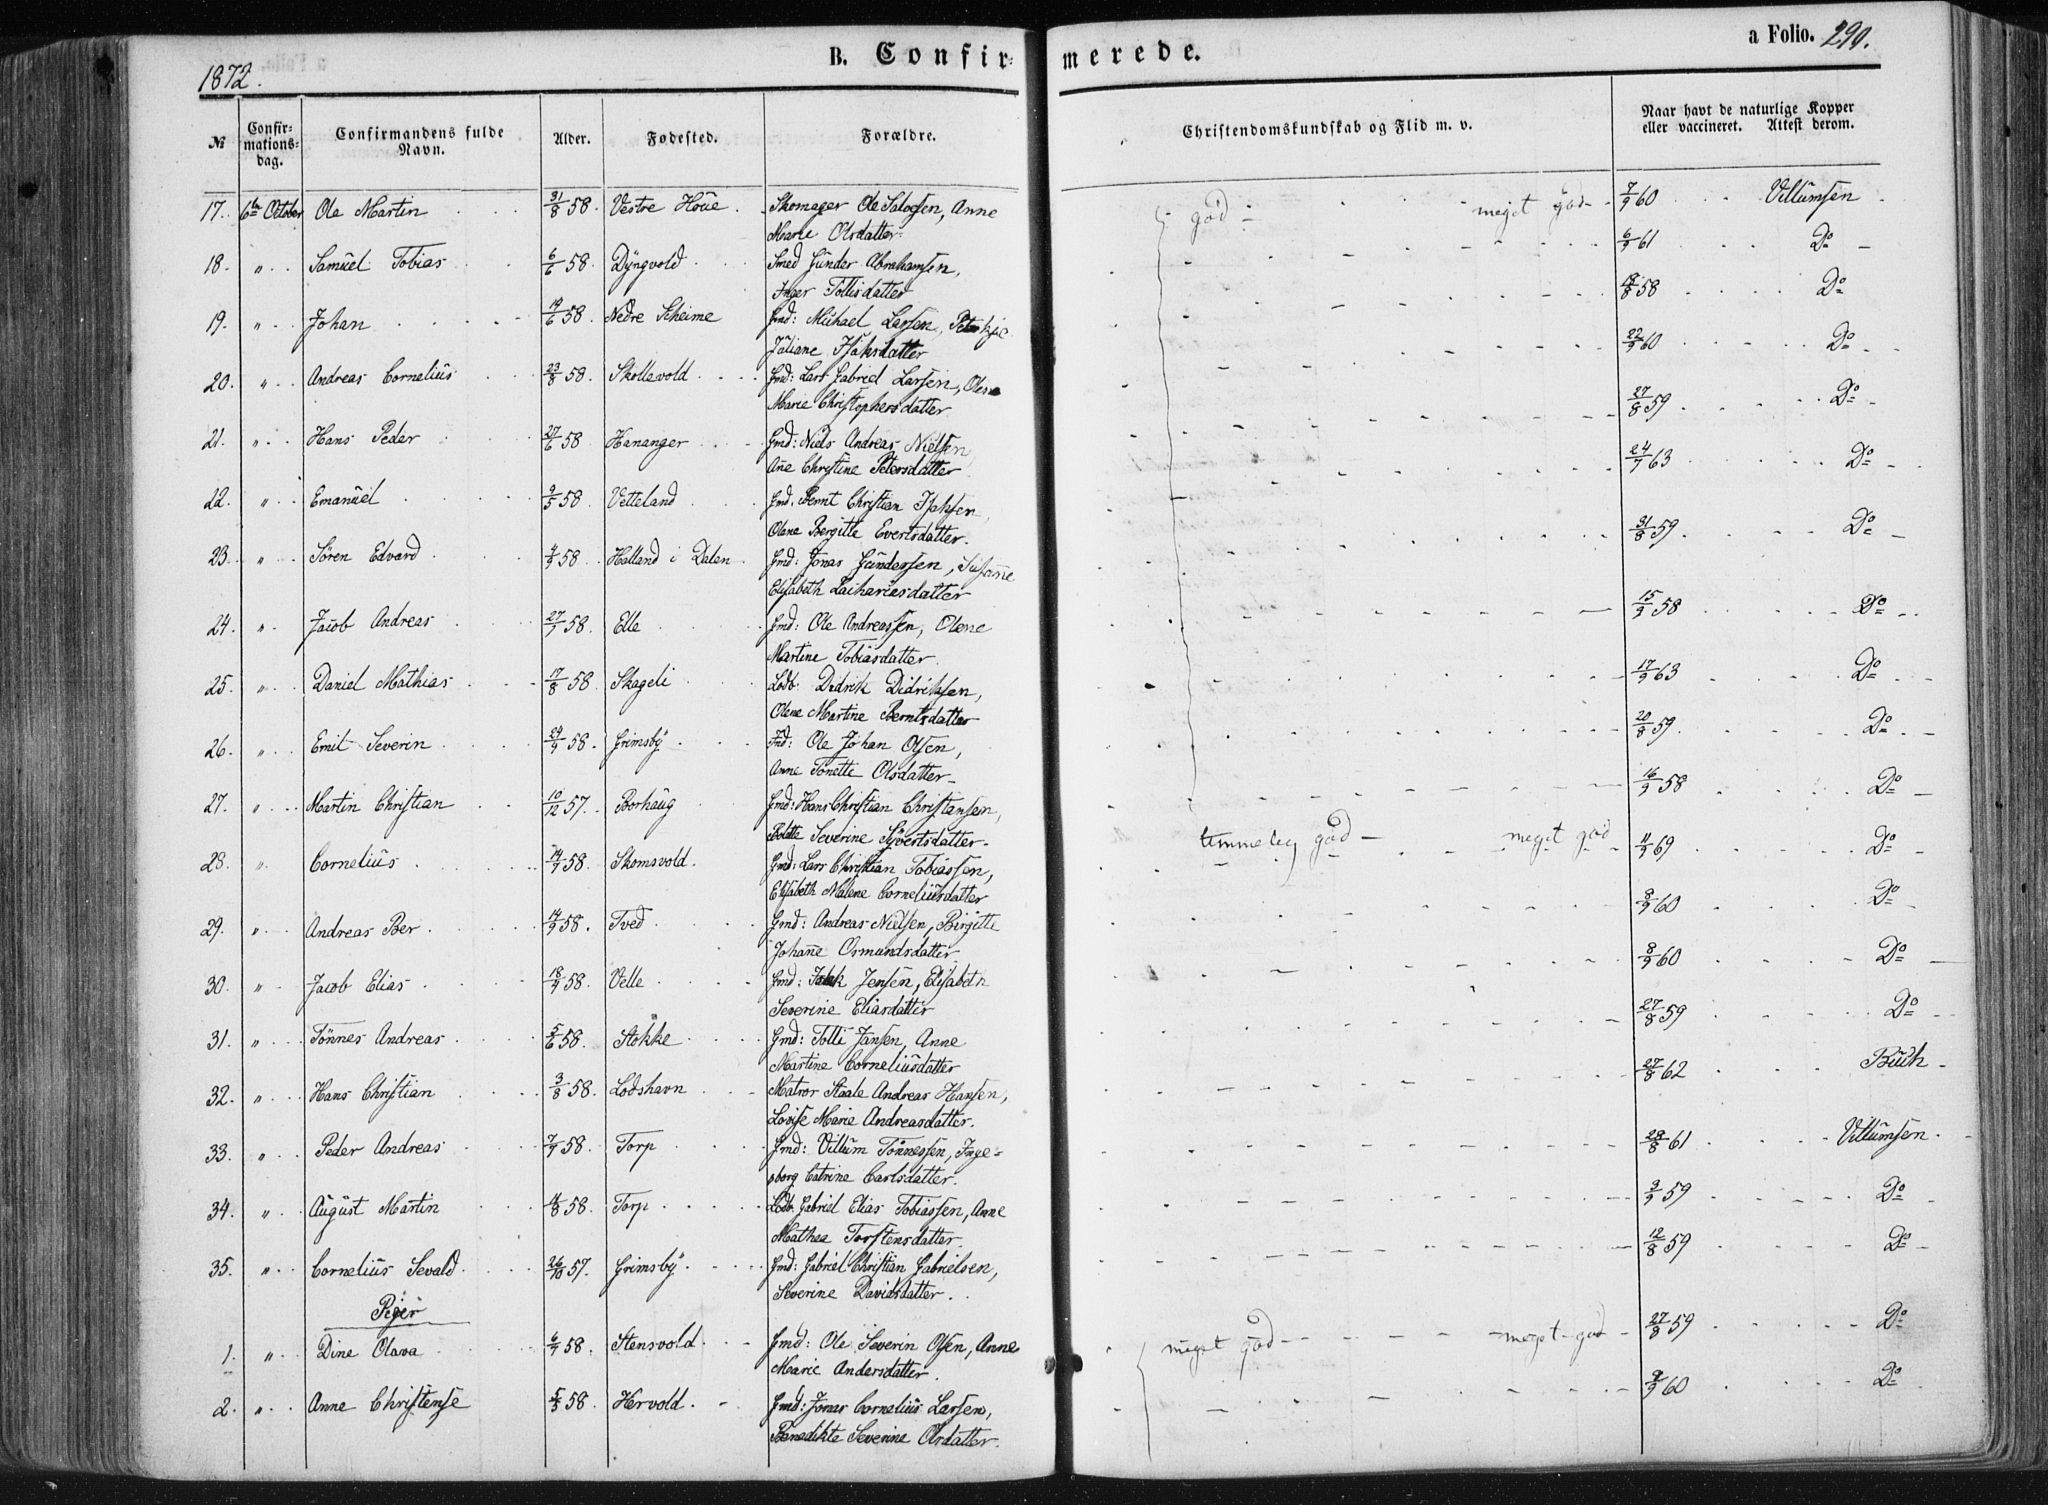 1872.
B. Confirmerede.
a Folio. 290.
№ Confirmationsdag. Confirmandens fulde Navn. Alder. Fødested. Forældre. Christendomskundskab og Flid m. v. Naar havt de naturlige Kopper eller vaccineret. Attest derom.
17. 6te October Ole Martin 31/8 58 Vestre Houe Skomager Ole Anne god meget god 7/9 60 Villumsen
Marie Olsdatter
18. " Samuel Tobias 6/6 58. Dyngvold Smed Gunder Abrahamsen, 6/9 61 Do
Inger Tollisdatter
19. " Johan 19/6 58 Nedre Skeime Gmd: Michael Larsen, 58 Do
Juliane Isaksdatter
20. " Andreas Cornelius 23/8 58. Skollevold Gmd: Lars Gabriel Larsen, Olene 22/9 60 Do
Marie Christophersdatter
21. " Hans Peder 27/6 58 Hananger Gmd: Niels Andreas Nielsen 27/8 59 Do
Ane Christine Petersdatter
22. " Emanuel 9/5 58 Vetteland Gmd. Bernt Christian Isaksen, 24/7 63 Do
Olene Bergitte Evertsdatter.
23. " Søren Edvard 4/9 58 Halland i Dalen Gmd: Jonas Gundersen, Susanne 31/8 59 Do
Elisabeth Zachariasdatter
24. " Jacob Andreas 27/7 58. Elle Gmd: Ole Andreassen, Olene 15/9 58 Do
Martine Tobiasdatter.
25. " Daniel Mathias 17/8 58 Skageli Lodb. Didrik Didriksen, 17/9 63 Do
Olene Martine Berntsdatter
26. " Emil Severin 29/9 58. Grimsby Ole Johan Olsen, 20/8 59. Do
Anne Tonette Olsdatter
27. " Martin Christian 10/12 57. Borhaug Gmd: Hans Christian Christansen, 16/9 58 Do
Bolette Severine Syvertsdatter
28. " Cornelius 14/7 58. Skomsvold. Gmd: Lars Christian Tobiassen, temmelig god meget god 11/9 69 Do
Elisabeth Malene Corneliusdatter
29. " Andreas Ber 14/9 58. Tved Gmd: Andreas Nielsen, Birgitte 8/9 60 Do
Johanne Osmundsdatter
30. " Jacob Elias 18/9 58. Velle Gmd: Jensen, Elisabeth 8/9 60 Do
Severine Eliasdatter
31. " Tønnes Andreas 5/6 58. Stokke Gmd: Tolli Jansen, Anne 27/8 59 Do
Martine Corneliusdatter
32. " Hans Christian 3/8 58. Lodshavn Matros Staale Andreas Hansen, 27/8 62 Buch
Lovise Marie Andreasdatter.
33. " Peder Andreas 7/9 58. Torp Gmd: Villum Tønnessen, Inge- 28/8 61 Villumsen
borg Catrine Carlsdatter.
34. " August Martin 58. Torp Lodb. Gabriel Elias Tobiassen, Anne 3/9 59 Do
Mathea Torstensdatter.
35. " Cornelius Sevald 26/10 57. Grimsby Gmd: Gabriel Christian Gabrielsen, 12/8 59 Do
Severine Davidsdatter.
Piger
1. " Dine Olava 6/9 58. Stensvold Gmd: Ole Severin Olsen, Anne meget god meget god 27/8 59 Do
Marie Andersdatter.
2. " Anne Christense 58 Hervold. Gmd: Jonas Cornelius Larsen, 60 Do
Benedikte Severine Olsdatter.